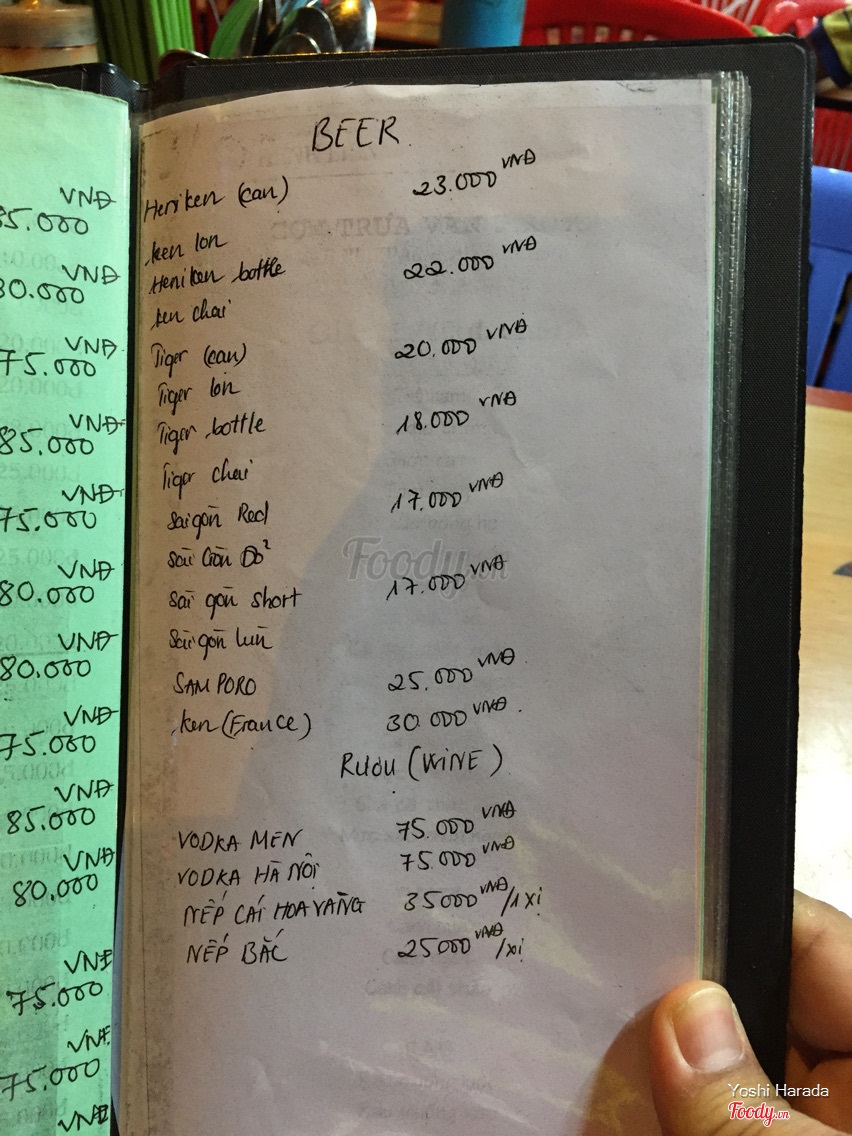 VNĐ
85.000
VNĐ
80.000
VNĐ
75.000
VNĐ
85.000
VNĐ
75.000
VNĐ
80.000
VNĐ
80.000
VNĐ
75.000
VNĐ
85.000
VNĐ
80.000
VNĐ
75.000
VNĐ
75.000
VNĐ
BEER
Heniken (can) 23.000 VNĐ
ken lon
Heniken bottle 22.000 VNĐ
ken chai
Tiger (can) 20.000 VNĐ
Tiger lon
Tiger bottle 18.000 VNĐ
Tiger chai
Saigon Red 17.000 VNĐ
Sài Gòn Đỏ
Sài gòn short 17.000 VNĐ
Sài gòn lùn
SAMPORO 25.000 VNĐ
ken (France) 30.000 VNĐ.
RƯỢU (WINE)
VODKA MEN 75.000 VNĐ
VODKA HÀ NỘI 75.000 VNĐ
NẾP CÁI HOA VÀNG 35000 VNĐ/1 xị
NẾP BẮC 25000 VNĐ/xị
Foody.vn
Yoshi Harada
Foody.vn